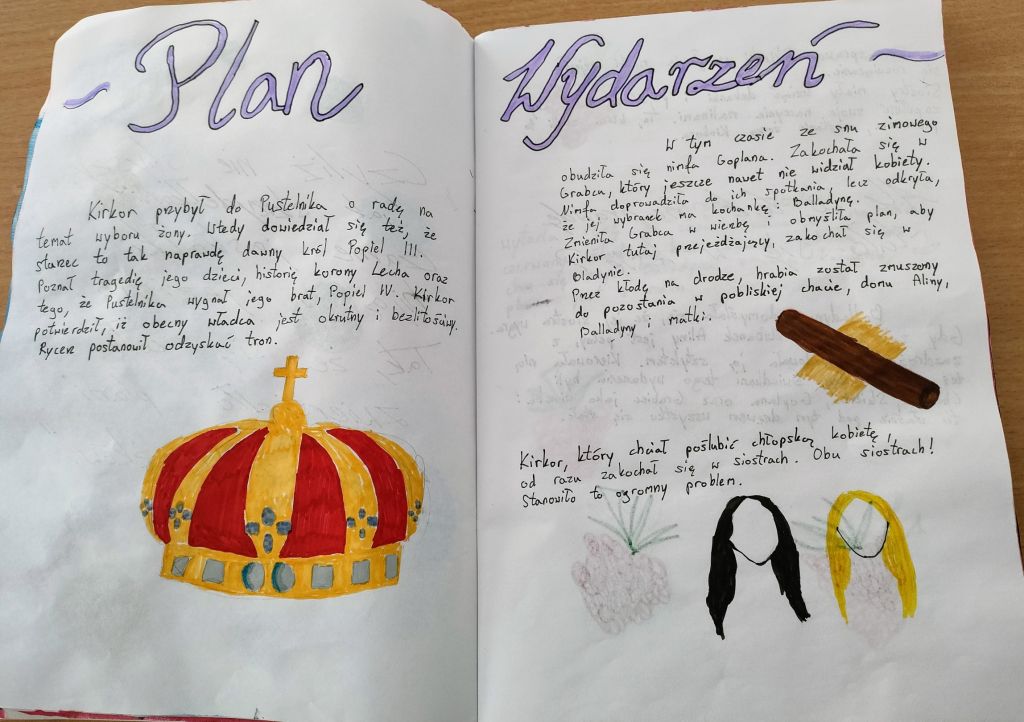 ~ Plan
Kirkor przybył do Pustelnika o radę na
temat wyboru żony. Wtedy dowiedział się też, że
starzec to tak naprawdę dawny król Popiel III.
Poznał tragedię jego dzieci, historię korony Lecha oraz
tego, że Pustelnika wygnał jego brat, Popiel IV. Kirkor
potwierdził, iż obecny władca jest okrutny i bezlitosny.
Rycerz postanowił odzyskać tron.
Wydarzeń ~
W tym czasie ze snu zimowego
obudziła się nimfa Goplana. Zakochała się w
Grabcu, który jeszcze nawet nie widział kobiety.
Nimfa doprowadziła do ich spotkania, lecz odkryła,
że jej wybranek ma kochankę: Balladynę.
Zmieniła Grabca w wierzbę i obmyśliła plan, aby
Kirkor tutaj przejeżdżający, zakochał się w
Bladynie.
Przez kłodę na drodze, hrabia został zmuszony
do pozostania w pobliskiej chacie, domu Aliny,
Balladyny i matki.
Kirkor, który chciał poślubić chłopską kobietę,
od razu zakochał się w siostrach. Obu siostrach!
Stanowiło to ogromny problem.